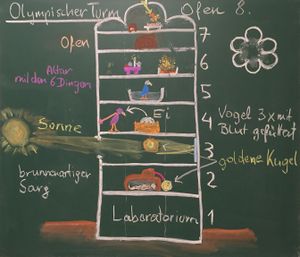 Olympischer Turm
Ofen 8.
7
Ofen
6
Altar
mit den 6 Dingen
5
Ei
4
Vogel 3x mit
Blut gefüttert
Sonne
3
goldene Kugel
brunnenartiger
Sarg
2
Laboratorium
1